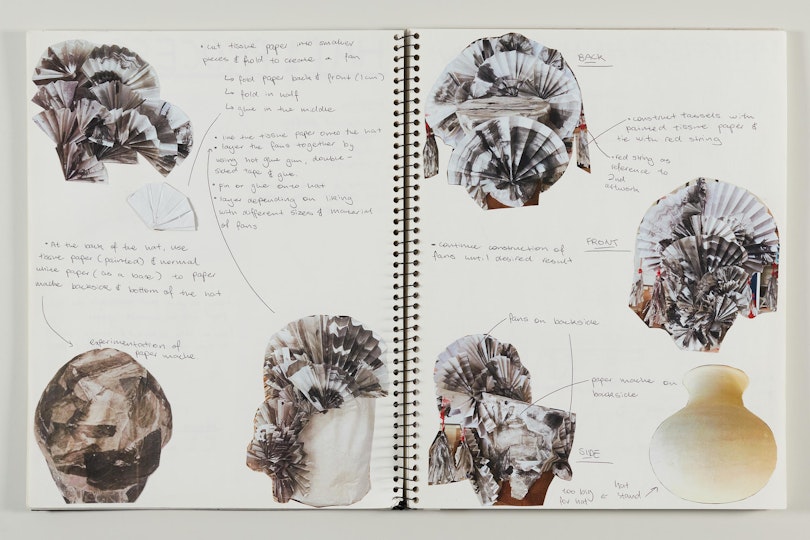 • Cut tissue paper into smaller
pieces & fold to create a fan
↳ fold paper back & front (1cm)
↳ fold in half
↳ glue in the middle
• Use the tissue paper onto the hat
• layer the fans together by
using hot glue gun, double-
sided tape & glue.
• pin or glue onto hat
• layer depending on liking
with different sizes & material
of fans
• At the back of the hat, use
tissue paper (painted) & normal
white paper (as a base) to paper
mache backside & bottom of the hat
experimentation of
paper mache
BACK
• construct tassels with
painted tissue paper &
tie with red string
• red string as
reference to
2nd
artwork
• continue construction of
fans until desired result
FRONT
fans on backside
paper mache on
backside
SIDE
too big
for hat
hat
stand